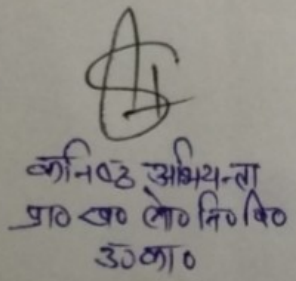 कनिष्ठ अभियन्ता
प्रा० ख० लो० नि० वि०
उ०का०